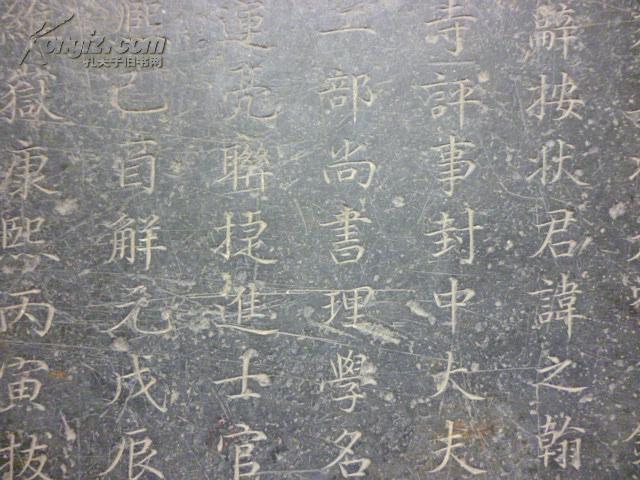 辭按狀君諱之翰
寺評事封中大夫
工部尚書理學名
運亮聯捷進士官
熙己酋解元戊辰
嶽康熙丙寅拔
Kongfz.com
孔夫子旧书网